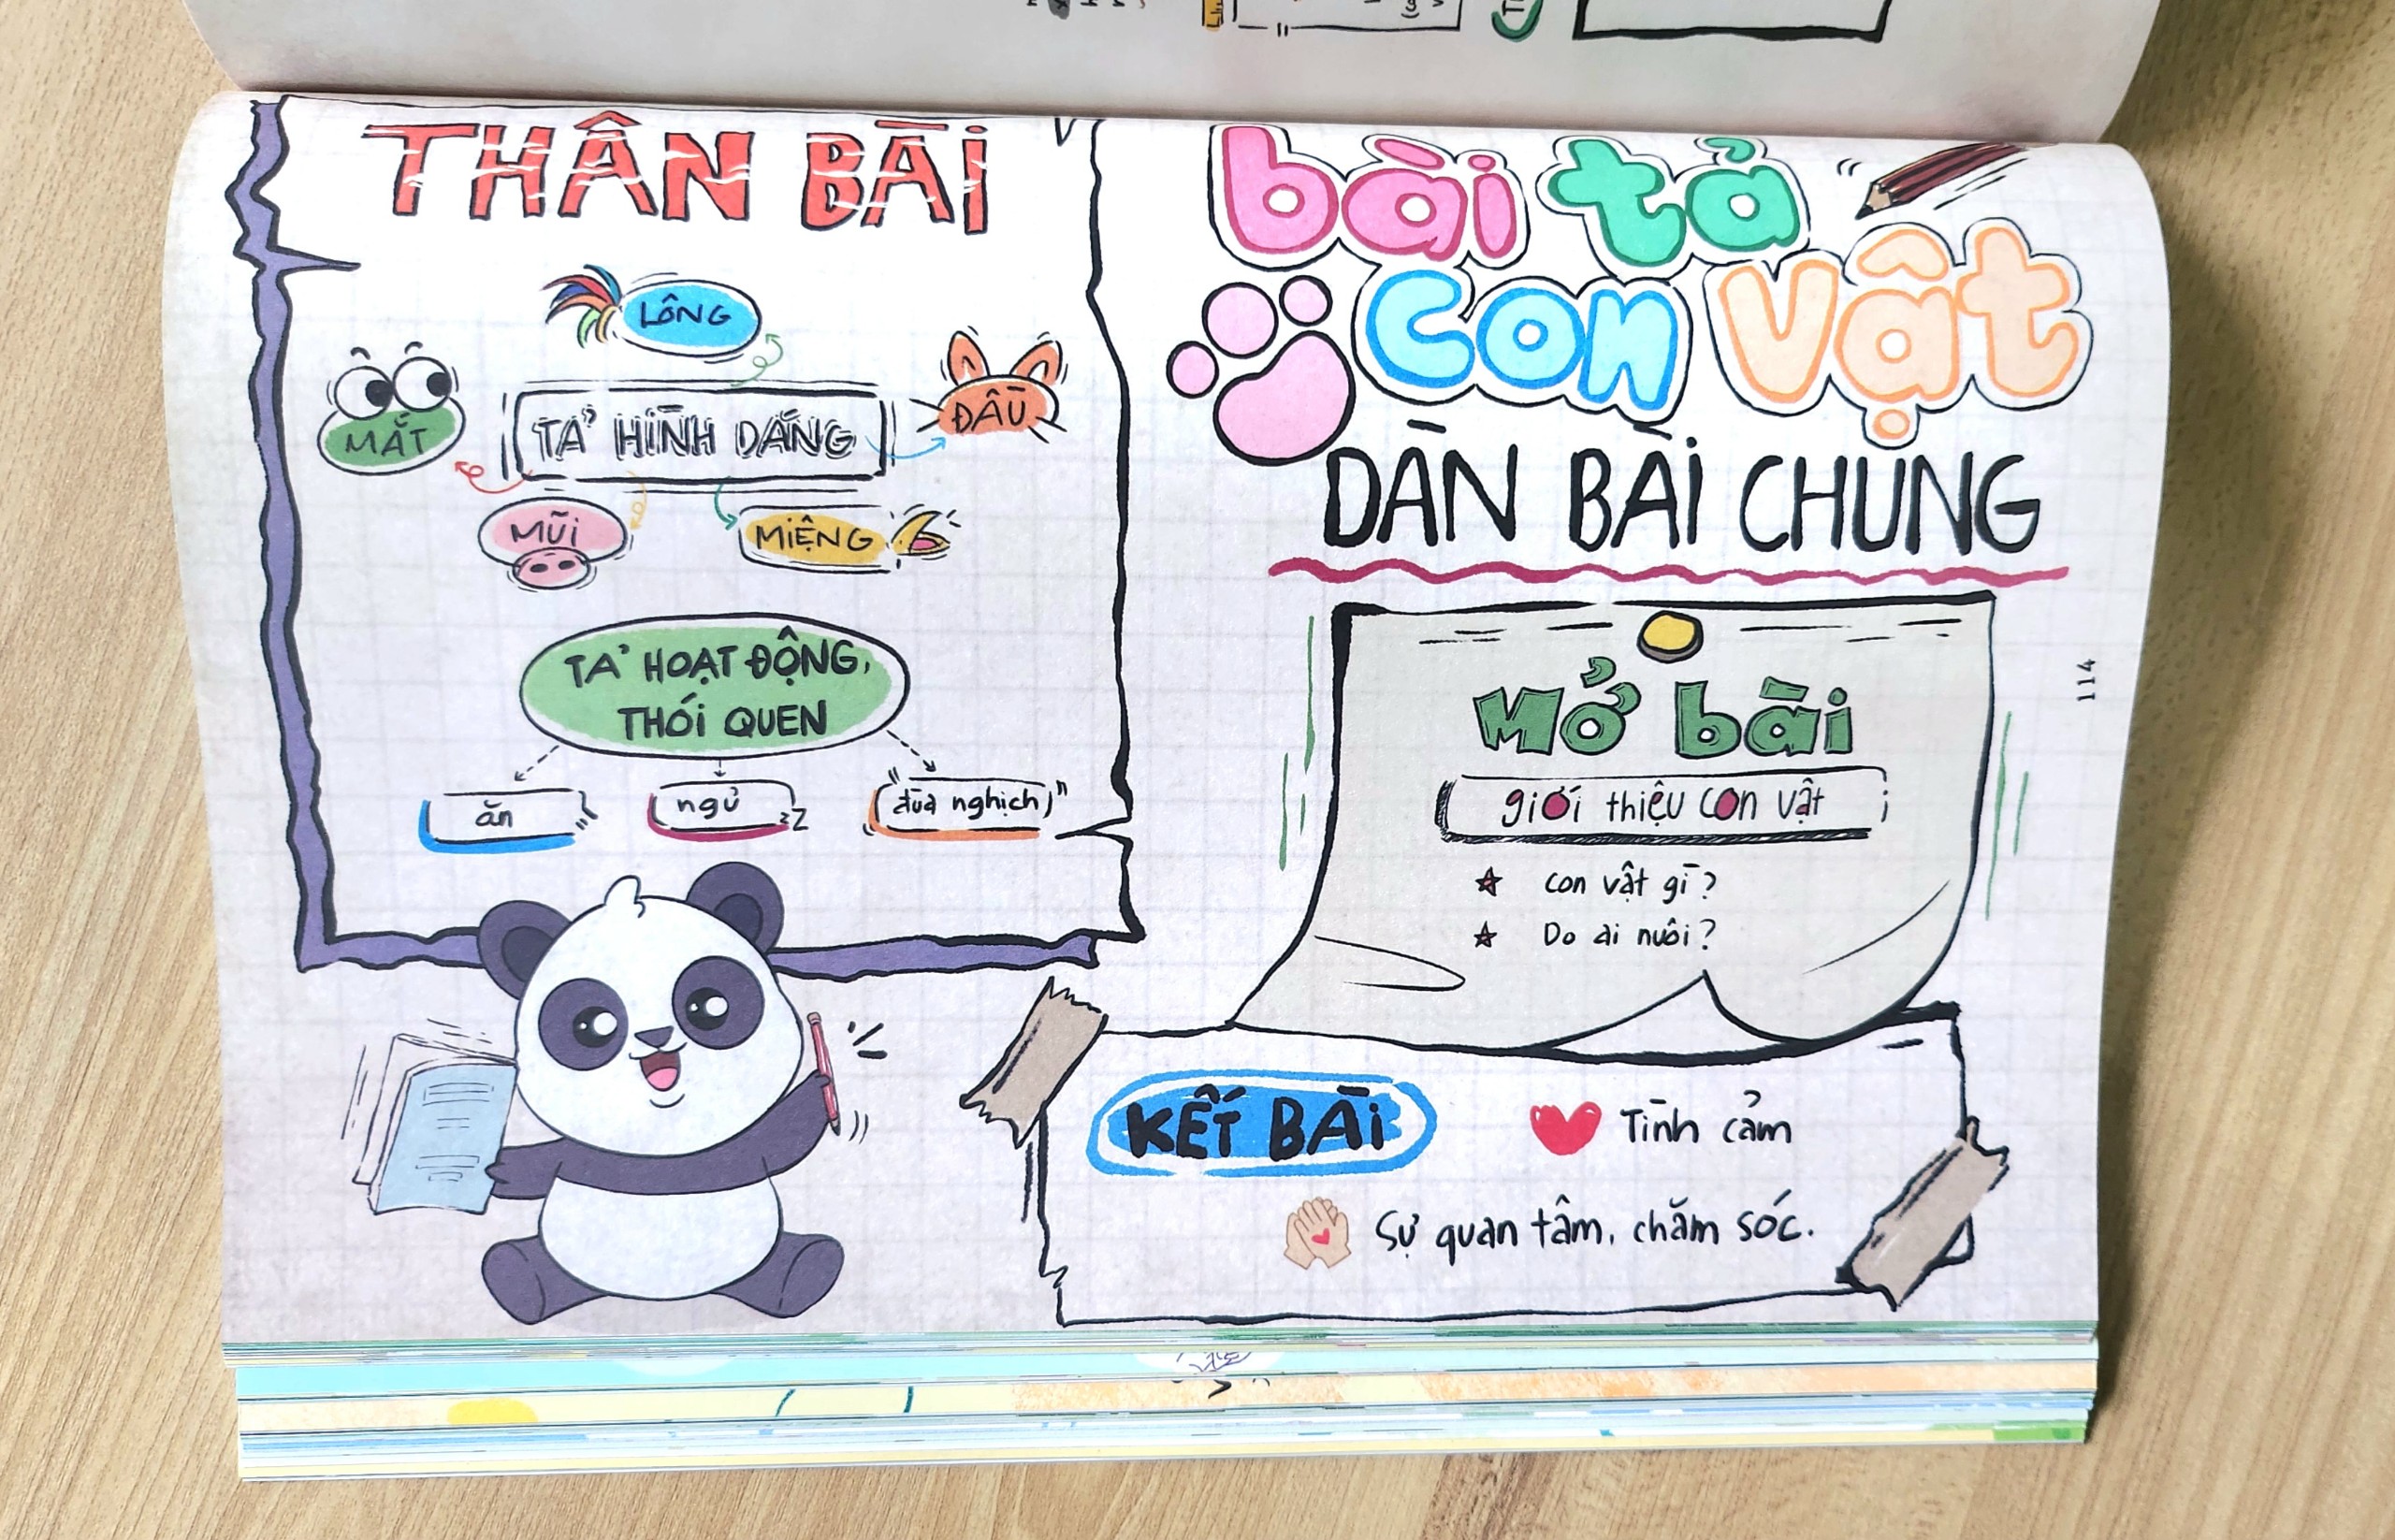 bài tả
con vật
DÀN BÀI CHUNG
Mở bài
giới thiệu con vật
con vật gì?
Do ai nuôi?
THÂN BÀI
LÔNG
MẮT
TẢ HÌNH DÁNG
ĐẦU
MŨI
MIỆNG
TẢ HOẠT ĐỘNG,
THÓI QUEN
ăn
ngủ
zZ
"đùa nghịch"
KẾT BÀI
Tình cảm
Sự quan tâm, chăm sóc.
114